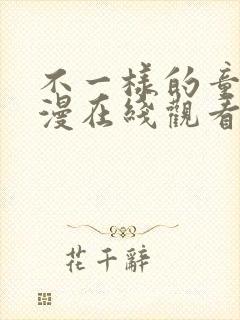 不一樣的童
漫在綫觀看
花千辭